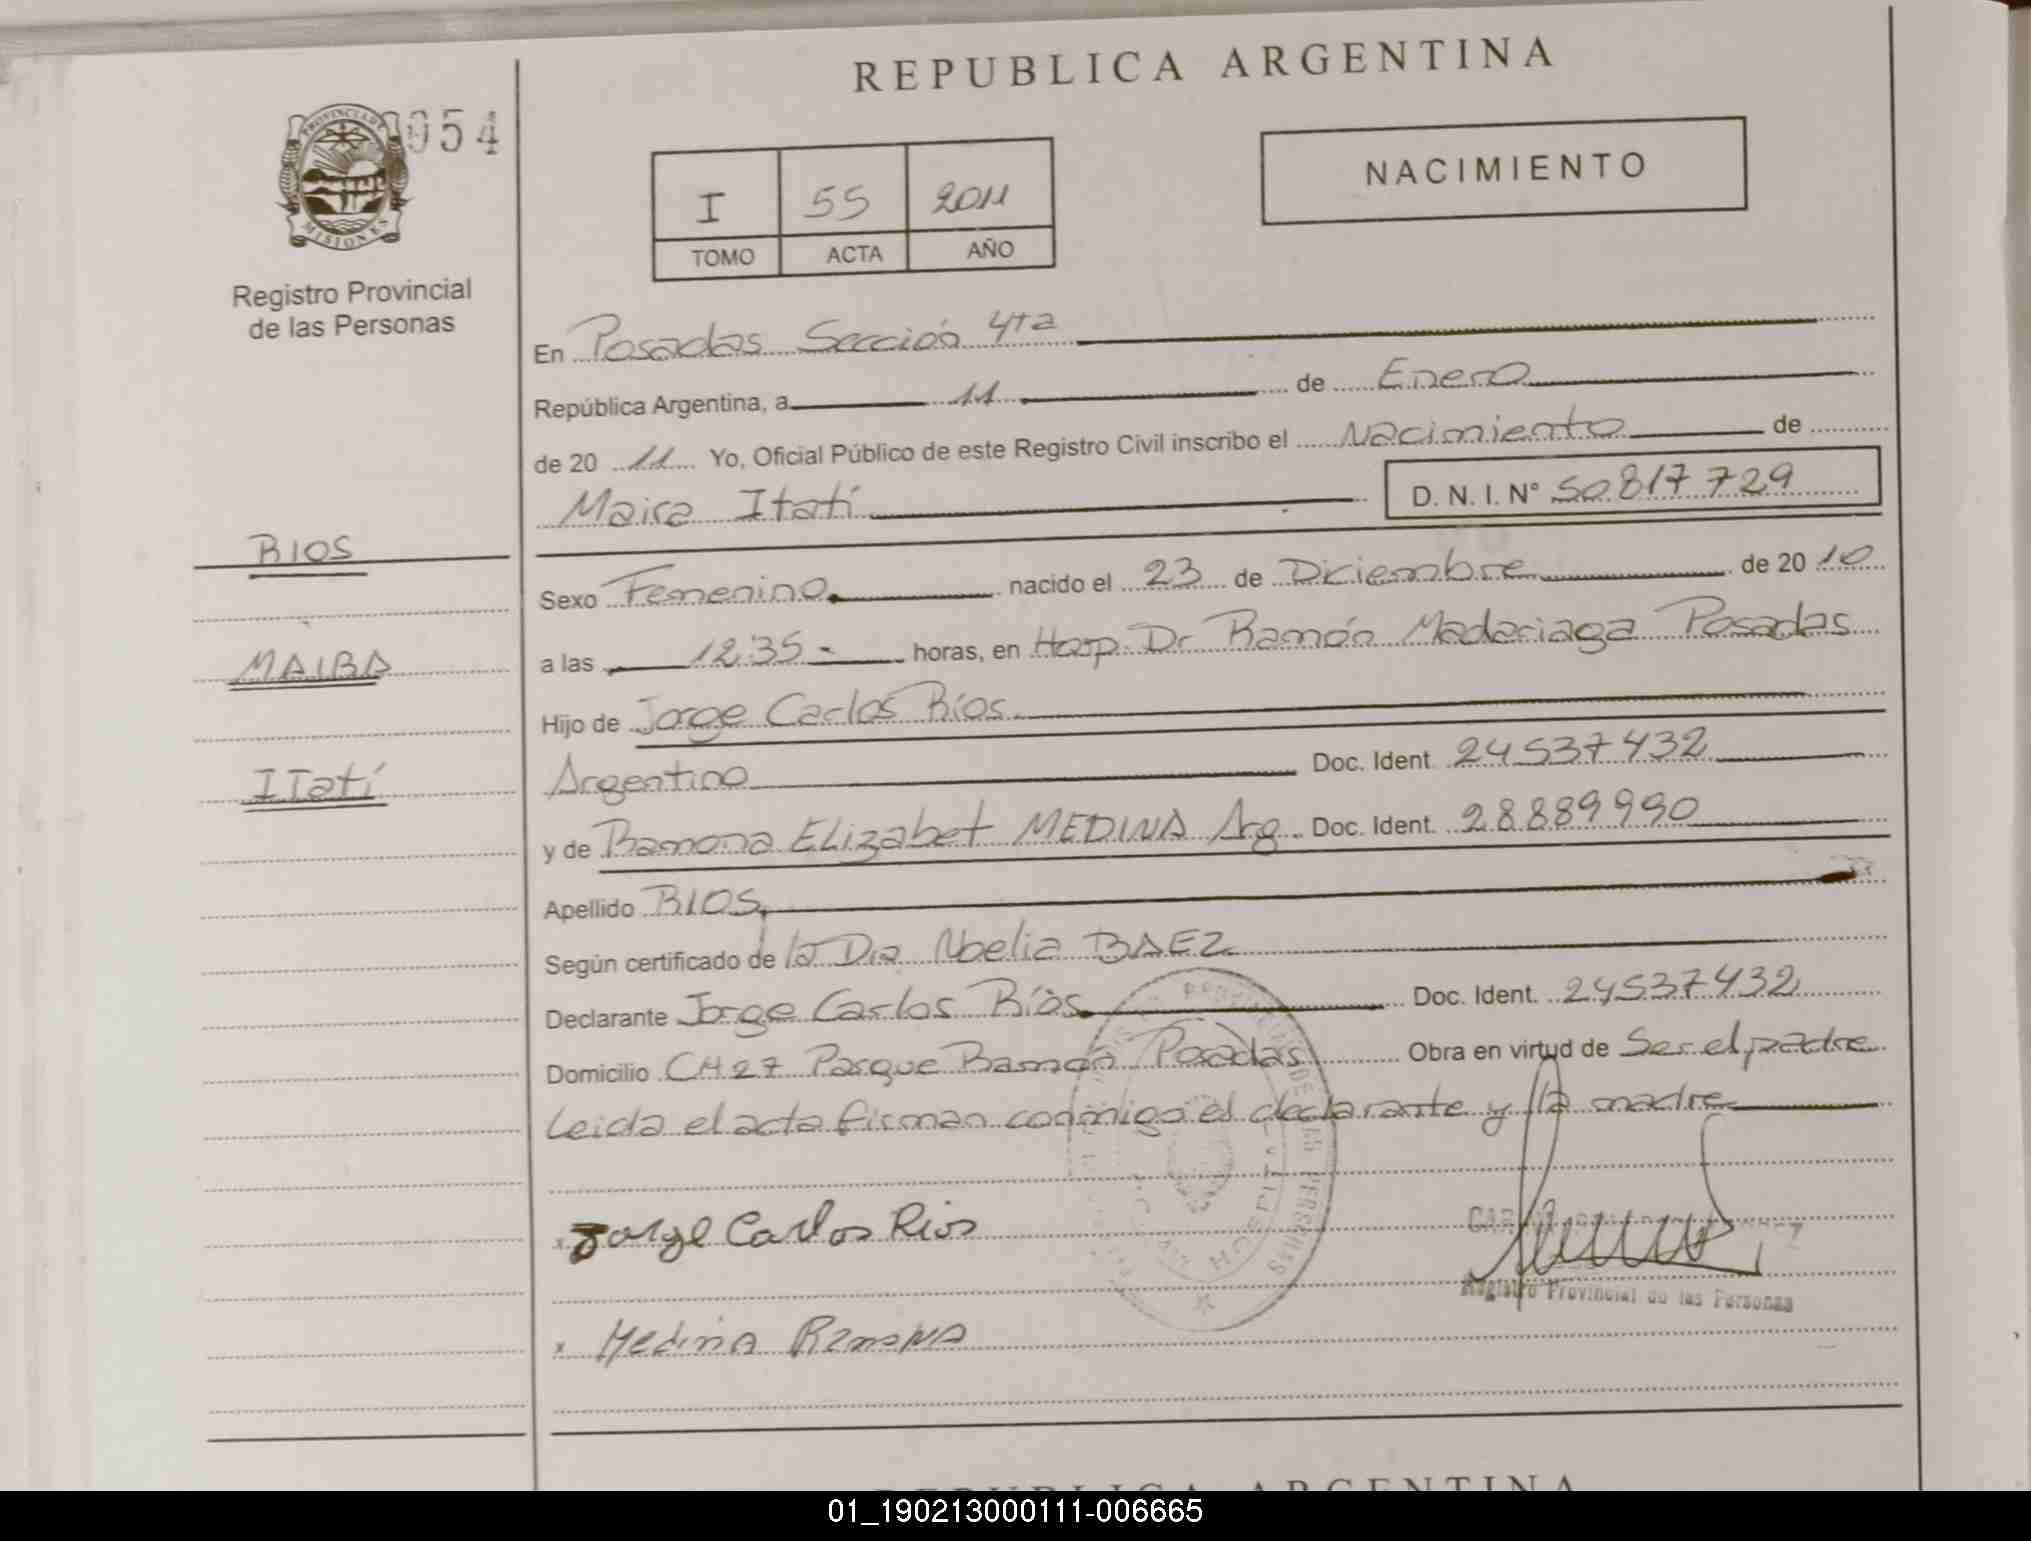 REPUBLICA ARGENTINA
PROVINCIA DE
MISIONES
054
Registro Provincial
de las Personas
I 55 2011
TOMO ACTA AÑO
NACIMIENTO
En Posadas Sección 4ta
República Argentina, a 11 de Enero
de 20 11 Yo, Oficial Público de este Registro Civil inscribo el Nacimiento de
Maira Itatí D. N. I. N° 50.817.729
RIOS
MAIRA
ITatí
Sexo Femenino nacido el 23 de Diciembre de 20 10
a las 12:35 - horas, en Hosp. Dr Ramón Madariaga Posadas
Hijo de Jorge Carlos Ríos
Argentino Doc. Ident. 24537432
y de Ramona ELizabet MEDINA Arg. Doc. Ident. 28889990
Apellido RIOS
Según certificado de la Dra Noelia BAEZ
Declarante Jorge Carlos Ríos Doc. Ident. 24537432
Domicilio CH 27 Parque Ramón Posadas Obra en virtud de Ser el padre
Leida el acta firman conmigo el declarante y la madre
x Jorge Carlos Rios
Registro Provincial de las Personas
x Medina Ramona
REPUBLICA ARGENTINA
01_190213000111-006665